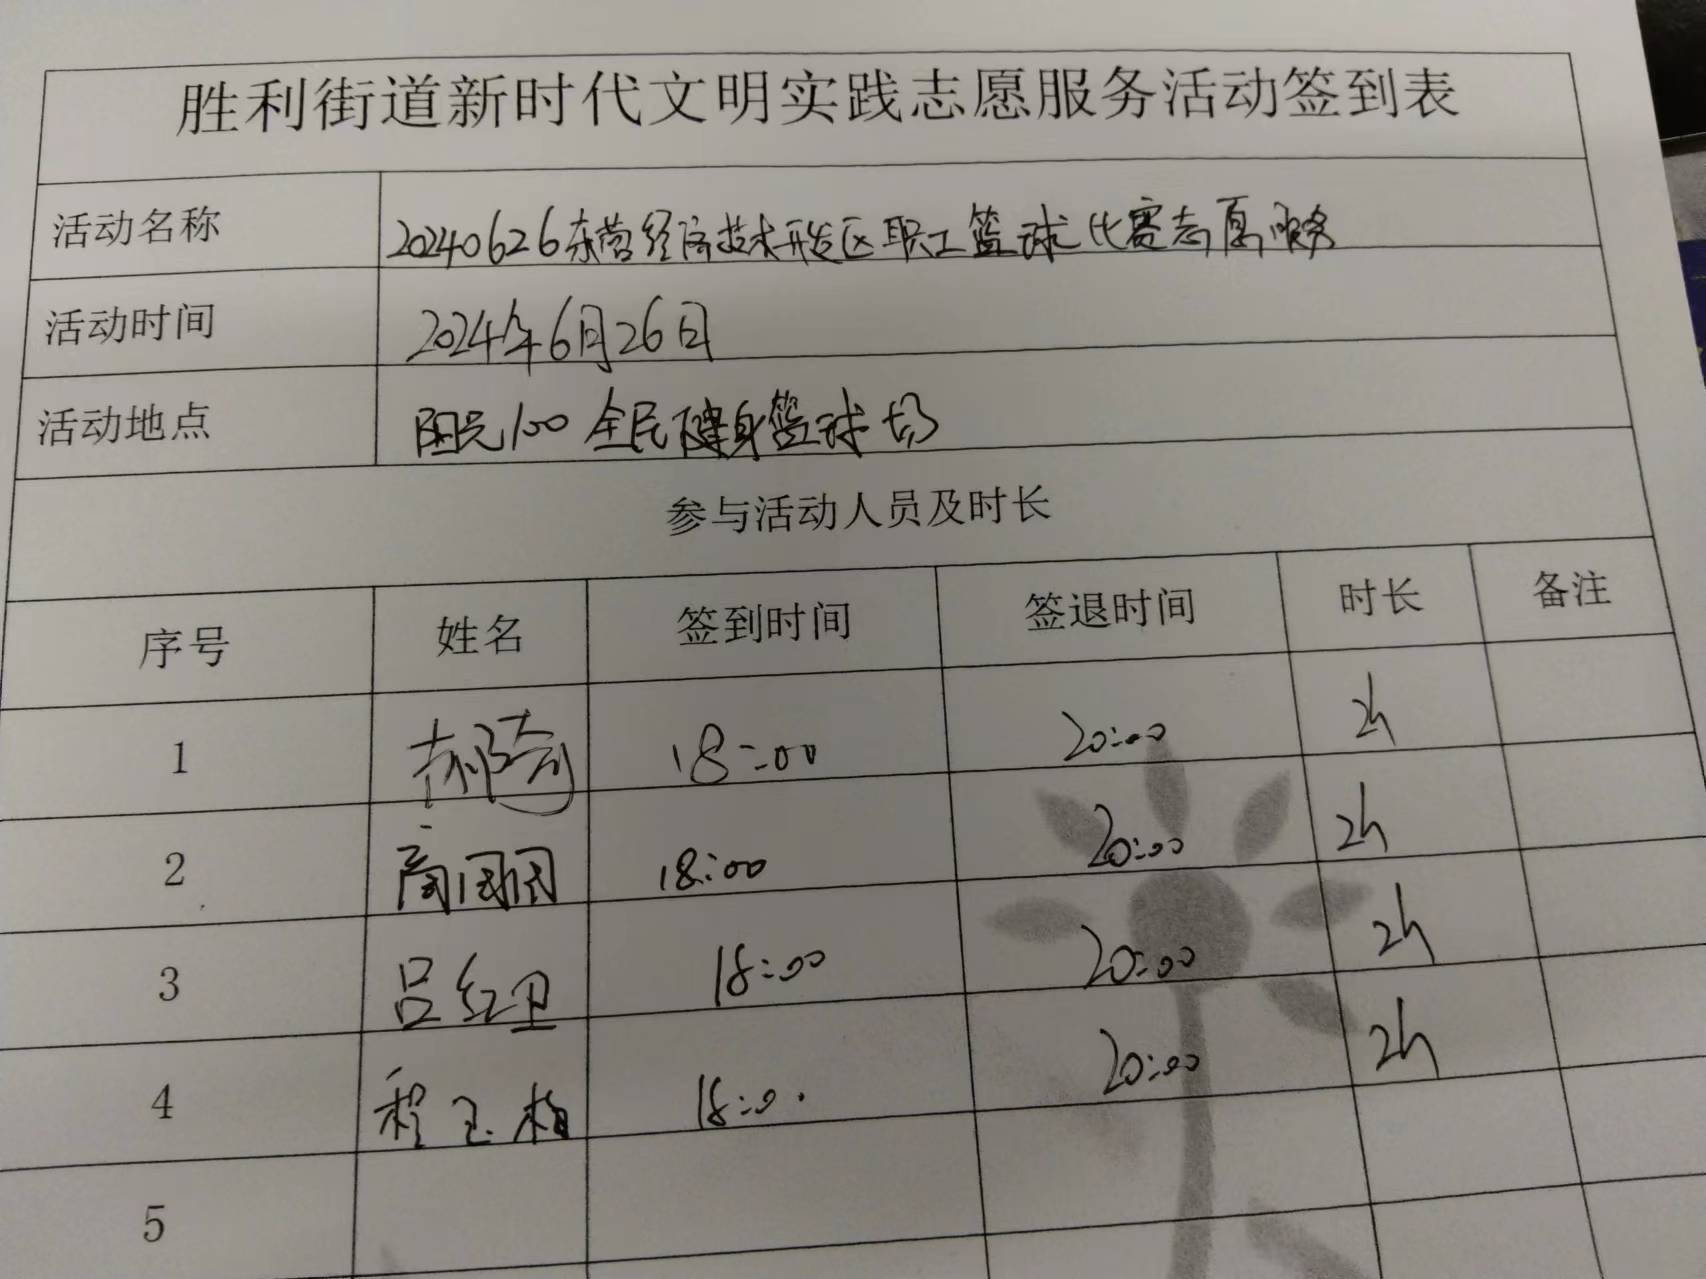 胜利街道新时代文明实践志愿服务活动签到表
活动名称 20240626东营经济技术开发区职工篮球比赛志愿服务
活动时间 2024年6月26日
活动地点 阳光100全民健身篮球场
参与活动人员及时长
序号 姓名 签到时间 签退时间 时长 备注
1 郝琦 18:00 20:00 2h
2 商团团 18:00 20:00 2h
3 吕红卫 18:00 20:00 2h
4 程玉梅 18:00 20:00 2h
5